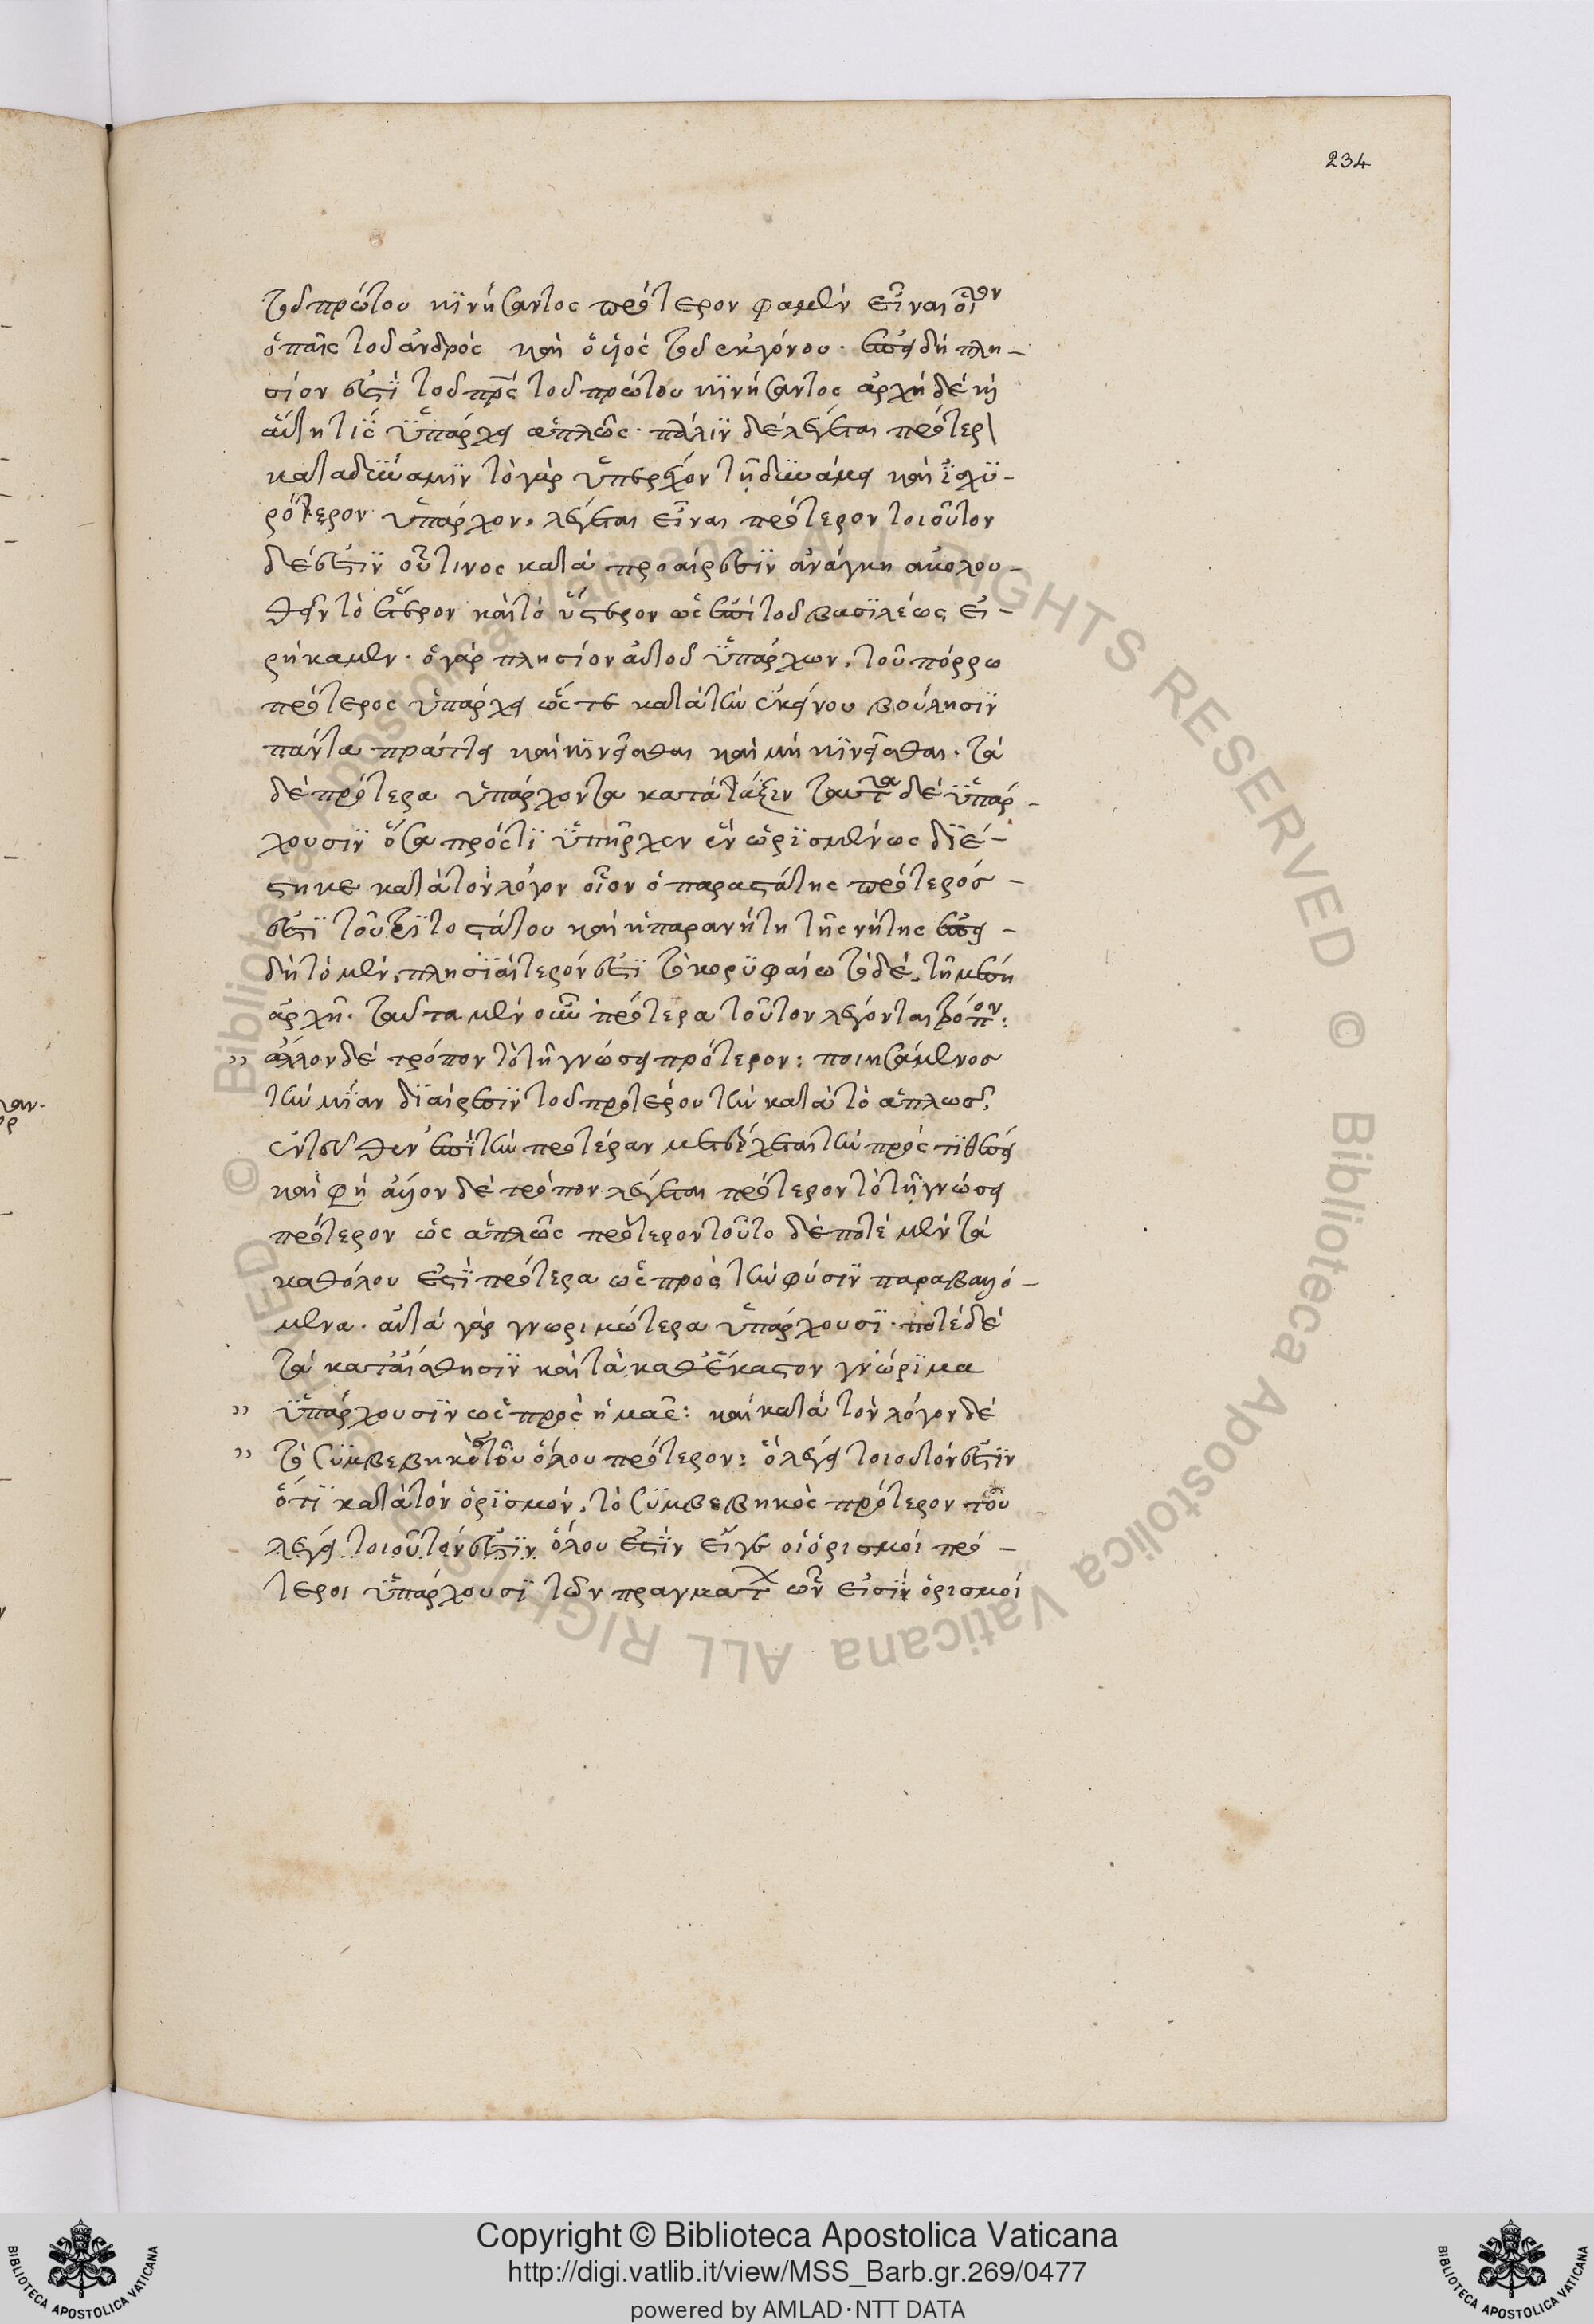 234
τοῦ πρώτου κινήσαντος πρότερον φαμὲν εἶναι οἷον
ὁ παῖς τοῦ ἀνδρὸς καὶ ὁ υἱὸς τοῦ ἐκγόνου· ἐπειδὴ πλη-
σίον ἐστὶ τοῦ πρὸς τοῦ πρώτου κινήσαντος ἀρχὴ δὲ καὶ
αὕτη τὶς ὑπάρχει ἁπλῶς· πάλιν δὲ λέγεται πρότερον
κατὰ δύναμιν τὸ γὰρ ὑπερέχον τῇ δυνάμει καὶ ἰσχυ-
ρότερον ὑπάρχον, λέγεται εἶναι πρότερον τοιοῦτον
δέ ἐστιν οὗτινος κατὰ προαίρεσιν ἀνάγκη ἀκολου-
θεῖν τὸ ἕτερον καὶ τὸ ὕστερον ὡς ἐπὶ τοῦ βασιλέως εἰ-
ρήκαμεν· ὁ γὰρ πλησίον αὐτοῦ ὑπάρχων, τοῦ πόρρω
πρότερος ὑπάρχει ὥστε κατὰ τὴν ἐκείνου βούλησιν
πάντα πράττει καὶ κινεῖσθαι καὶ μὴ κινεῖσθαι· τὰ
δὲ πρότερα ὑπάρχοντα κατὰ τάξιν ταῦτα δὲ ὑπάρ-
χουσιν ὅσα πρός τι ὑπῆρχεν ἓν ὡρισμένως διέ-
στηκε κατὰ τὸν λόγον οἷον ὁ παραστάτης πρότερός
ἐστι τοῦ τριτοστάτου καὶ ἡ παρανήτη τῆς νήτης ἐπει-
δὴ τὸ μὲν, πλησιαίτερόν ἐστι τῷ κορυφαίῳ τὸ δὲ, τῇ μέσῃ
ἀρχῇ· ταῦτα μὲν οὖν πρότερα τοῦτον λέγονται τρόπον:
" ἄλλον δὲ τρόπον τὸ τῇ γνώσει πρότερον: ποιησάμενος
τὴν μίαν διαίρεσιν τοῦ προτέρου τὴν κατὰ τὸ ἁπλῶς,
ἐντεῦθεν ἐπὶ τὴν προτέραν μετέρχεται τὴν πρός τι θέσει
καὶ φη ἄλλον δὲ τρόπον λέγεται πρότερον τὸ τῇ γνώσει
πρότερον ὡς ἁπλῶς πρότερον τοῦτο δὲ ποτὲ μὲν τὰ
καθόλου ἐστὶ πρότερα ὡς πρὸς τὴν φύσιν παραβαλλό-
μενα· αὐτὰ γὰρ γνωριμώτερα ὑπάρχουσι· ποτὲ δὲ
τὰ κατ' αἴσθησιν καὶ τὰ καθ' ἕκαστον γνώριμα
" ὑπάρχουσιν ὡς πρὸς ἡμᾶς: καὶ κατὰ τὸν λόγον δὲ
" τὸ συμβεβηκὸς τοῦ ὅλου πρότερον: ὃ λέγει τοιοῦτόν ἐστιν
ὅτι κατὰ τὸν ὁρισμόν, τὸ συμβεβηκὸς πρότερον τοῦ
λέγει τοιοῦτόν ἐστιν ὅλου ἐστὶν εἴγε οἱ ὁρισμοὶ πρό-
τεροι ὑπάρχουσι τῶν πραγμάτων ὧν εἰσὶν ὁρισμοί
Copyright © Biblioteca Apostolica Vaticana
http://digi.vatlib.it/view/MSS_Barb.gr.269/0477
powered by AMLAD·NTT DATA